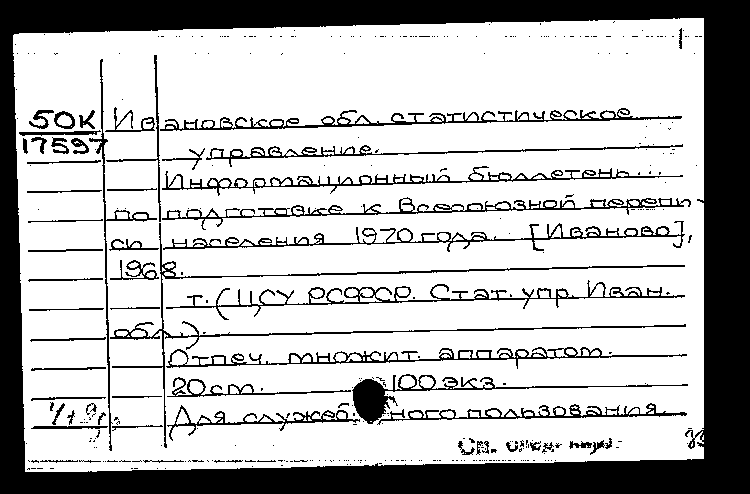 50К Ивановское обл. статистическое
17597 управление.
Информационный бюллетень...
по подготовке к Всесоюзной перепи-
си населения 1970 года. [Иваново],
1968.
т. (ЦСУ РСФСР. Стат. упр. Иван.
обл.).
Отпеч. множит. аппаратом.
20 см. 100 экз.
Для служеб. ного пользования.
См.